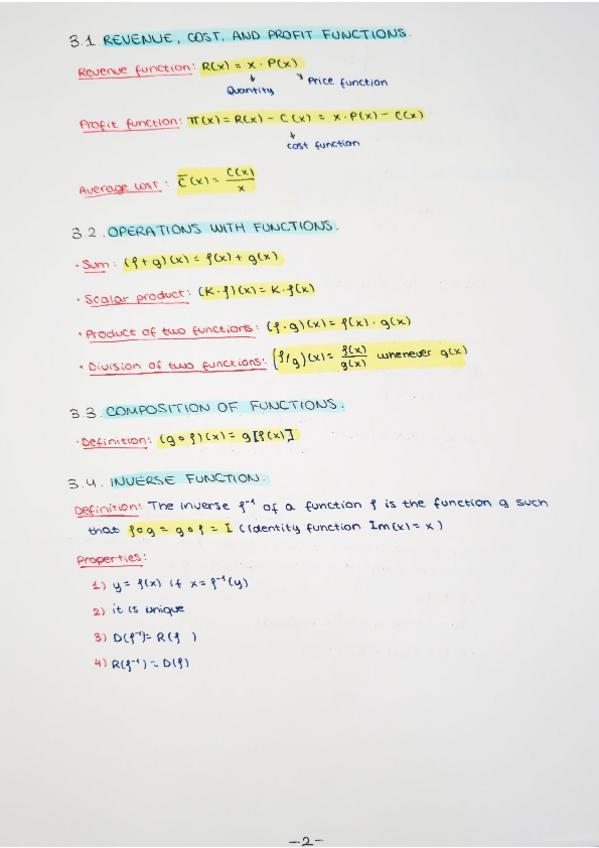 3.1 REVENUE, COST, AND PROFIT FUNCTIONS.
Revenue function: R(x) = x · P(x)
Quantity Price function
Profit function: π(x) = R(x) - C(x) = x · P(x) - C(x)
cost function
Average cost: C̄(x) = C(x)/x
3.2. OPERATIONS WITH FUNCTIONS.
· Sum: (f+g)(x) = f(x) + g(x)
· Scalar product: (K·f)(x) = K·f(x)
· Product of two functions: (f·g)(x) = f(x)·g(x)
· Division of two functions: (f/g)(x) = f(x)/g(x) whenever g(x)
3.3 COMPOSITION OF FUNCTIONS.
· Definition: (g∘f)(x) = g[f(x)]
3.4. INVERSE FUNCTION.
Definition: The inverse f⁻¹ of a function f is the function g such
that f∘g = g∘f = I (Identity function Im(x) = x)
Properties:
1) y = f(x) if x = f⁻¹(y)
2) it is unique
3) D(f⁻¹) = R(f )
4) R(f⁻¹) = D(f)
-2-